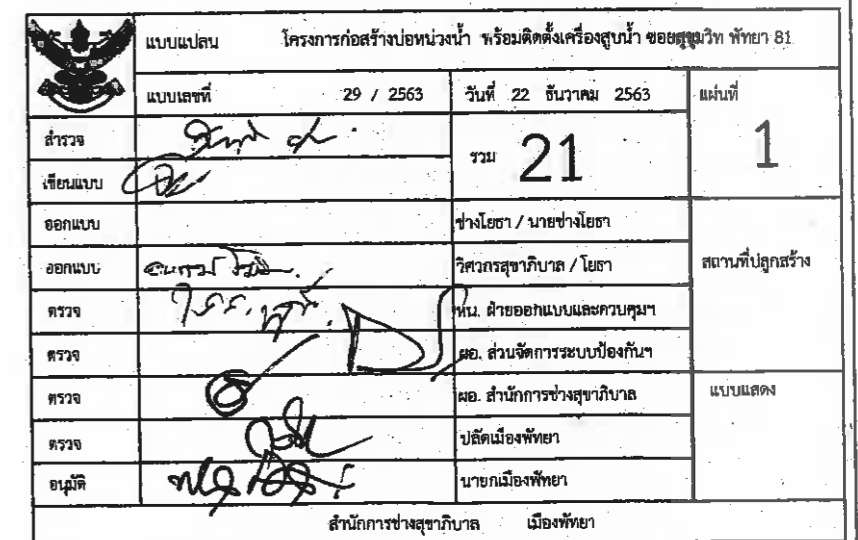 แบบแปลน โครงการก่อสร้างบ่อหน่วงน้ำ พร้อมติดตั้งเครื่องสูบน้ำ ซอยสุขุมวิท พัทยา 81
แบบเลขที่ 29 / 2563 วันที่ 22 ธันวาคม 2563 แผ่นที่
สำรวจ รวม 21 1
เขียนแบบ
ออกแบบ ช่างโยธา / นายช่างโยธา
ออกแบบ วิศวกรสุขาภิบาล / โยธา สถานที่ปลูกสร้าง
ตรวจ หน. ฝ่ายออกแบบและควบคุมฯ
ตรวจ ผอ. ส่วนจัดการระบบป้องกันฯ
ตรวจ ผอ. สำนักการช่างสุขาภิบาล แบบแสดง
ตรวจ ปลัดเมืองพัทยา
อนุมัติ นายกเมืองพัทยา
สำนักการช่างสุขาภิบาล เมืองพัทยา